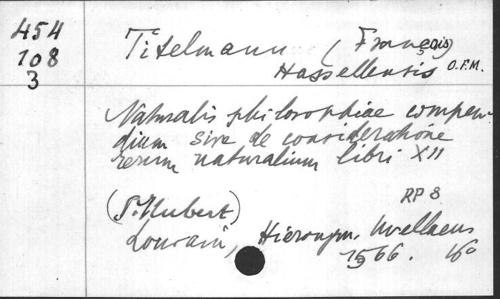 454
108
3
Titelmann (François)
Hassellensis O.F.M.
Naturalis philosophiae compen-
dium sive de consideratione
rerum naturalium libri XII
RP 8
(S. Hubert)
Louvain, Hieronym. Wellaeus
1566. 16°